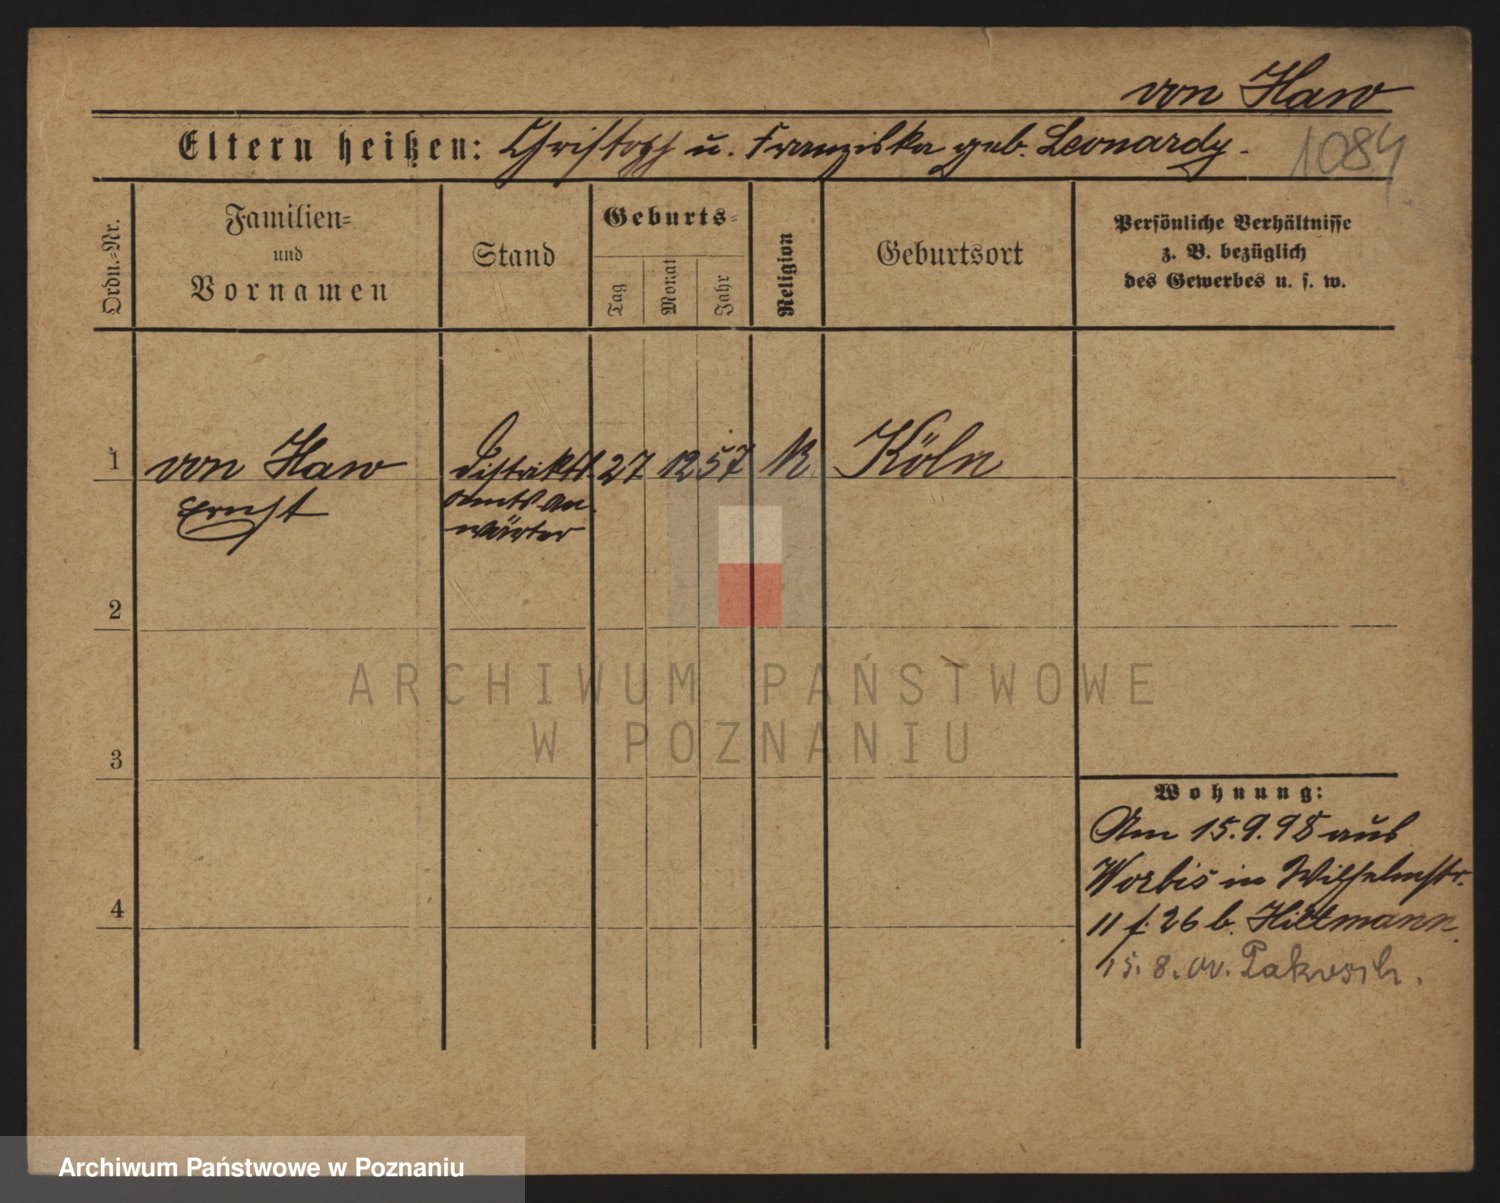 von Haw
Eltern heißen: Christoph u. Franziska geb. Leonardy.
1084
Ordn.-Nr.
Familien-
und
Vornamen
Stand
Geburts-
Tag
Monat
Jahr
Religion
Geburtsort
Persönliche Verhältnisse
z. B. bezüglich
des Gewerbes u. s. w.
1 von Haw Distrikts 27 12 57 K Köln
Ernst amts an
wärter
2
3
4
Wohnung:
Am 15.9.98 aus
Worbis in Wilhelmstr.
11 f. 26 b. Hiltmann.
15.8.00. Pakosch.
ARCHIWUM PAŃSTWOWE
W POZNANIU
Archiwum Państwowe w Poznaniu